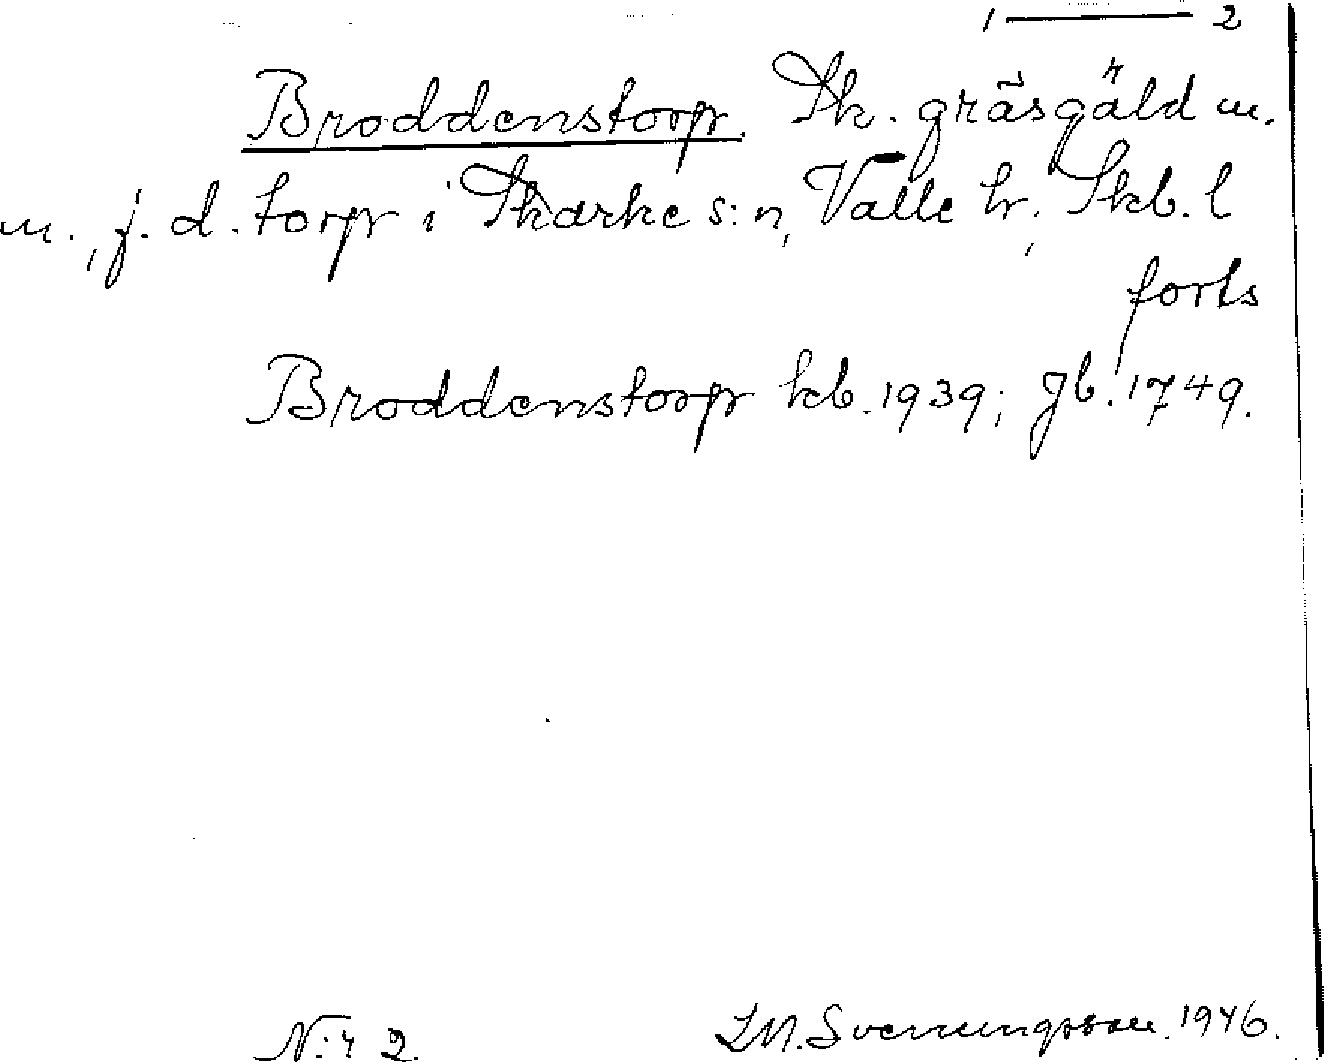 1 — 2
Broddenstorp. Sk. gräsgäld m.
m., f. d. torp i Skarke s:n, Valle hr, Skb. l
forts
Broddenstorp kb. 1939; jb. 1749.
N:r 2. I.M. Svenungsson. 1946.